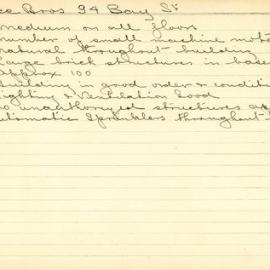 ce Bros 94 Bay St
medium on all floors
number of small machine moto
natural throughout building
large brick structures in base
approx 100
building in good order & conditi
ighting & Ventilation Good
no unauthorized structures
utomatic Sprinklers throughout